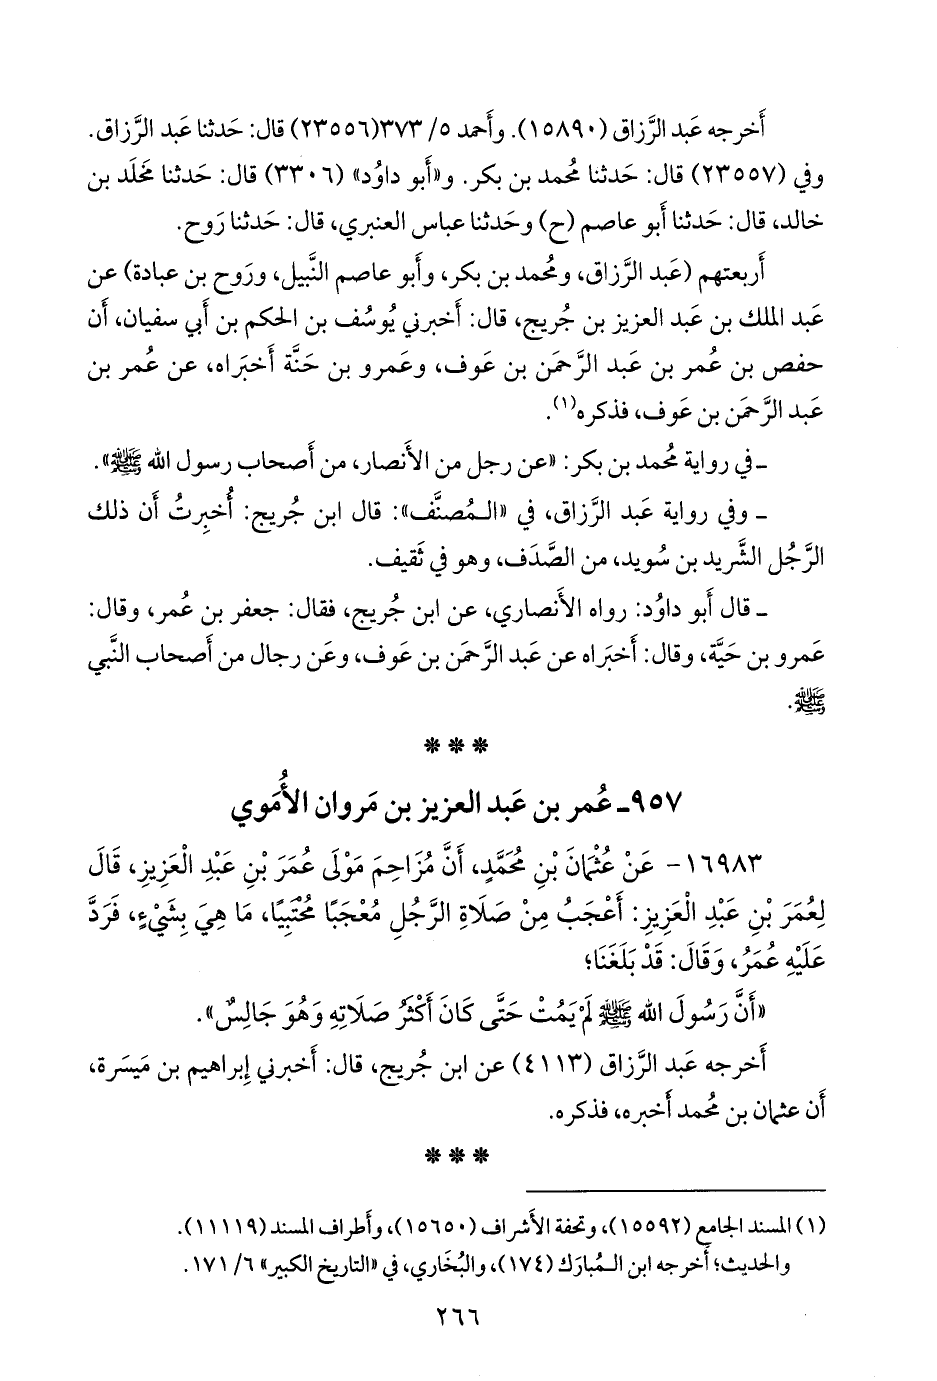 أَخرجه عَبد الرَّزاق (١٥٨٩٠). وأَحمد ٥/ ٣٧٣(٢٣٥٥٦) قال: حَدثنا عَبد الرَّزاق.
وفي (٢٣٥٥٧) قال: حَدثنا مُحمد بن بكر. و«أَبو داوُد» (٣٣٠٦) قال: حَدثنا مَخلَد بن
خالد، قال: حَدثنا أَبو عاصم (ح) وحَدثنا عباس العنبري، قال: حَدثنا رَوح.
أَربعتهم (عَبد الرَّزاق، ومُحمد بن بكر، وأَبو عاصم النَّبيل، ورَوح بن عبادة) عن
عَبد الملك بن عَبد العزيز بن جُريج، قال: أَخبرني يُوسُف بن الحكم بن أَبي سفيان، أَن
حفص بن عُمر بن عَبد الرَّحمَن بن عَوف، وعَمرو بن حَنَّة أَخبَراه، عن عُمر بن
عَبد الرَّحمَن بن عَوف، فذكره(١).
ـ في رواية مُحمد بن بكر: «عن رجل من الأَنصار، من أَصحاب رسول الله ﷺ».
ـ وفي رواية عَبد الرَّزاق، في «الـمُصنَّف»: قال ابن جُريج: أُخبِرتُ أَن ذلك
الرَّجُل الشَّريد بن سُويد، من الصَّدَف، وهو في ثَقيف.
ـ قال أَبو داوُد: رواه الأَنصاري، عن ابن جُريج، فقال: جعفر بن عُمر، وقال:
عَمرو بن حَيَّة، وقال: أَخبَراه عن عَبد الرَّحمَن بن عَوف، وعَن رجال من أَصحاب النَّبي
ﷺ.
* * *
٩٥٧ـ عُمر بن عَبد العزيز بن مَروان الأُمَوي
١٦٩٨٣- عَنْ عُثْمَانَ بْنِ مُحَمَّدٍ، أَنَّ مُزَاحِمَ مَوْلَى عُمَرَ بْنِ عَبْدِ الْعَزِيزِ، قَالَ
لِعُمَرَ بْنِ عَبْدِ الْعَزِيزِ: أَعْجَبُ مِنْ صَلَاةِ الرَّجُلِ مُعْجَبًا مُحْتَبِيًا، مَا هِيَ بِشَيْءٍ، فَرَدَّ
عَلَيْهِ عُمَرُ، وَقَالَ: قَدْ بَلَغَنَا؛
«أَنَّ رَسُولَ الله ﷺ لَمْ يَمُتْ حَتَّى كَانَ أَكْثَرُ صَلَاتِهِ وَهُوَ جَالِسٌ».
أَخرجه عَبد الرَّزاق (٤١١٣) عن ابن جُريج، قال: أَخبرني إِبراهيم بن مَيسَرة،
أَن عثمان بن مُحمد أَخبره، فذكره.
* * *
(١) المسند الجامع (١٥٥٩٢)، وتحفة الأَشراف (١٥٦٥٠)، وأَطراف المسند (١١١١٩).
والحديث؛ أَخرجه ابن الـمُبارَك (١٧٤)، والبُخَاري، في «التاريخ الكبير» ٦/ ١٧١.
٢٦٦